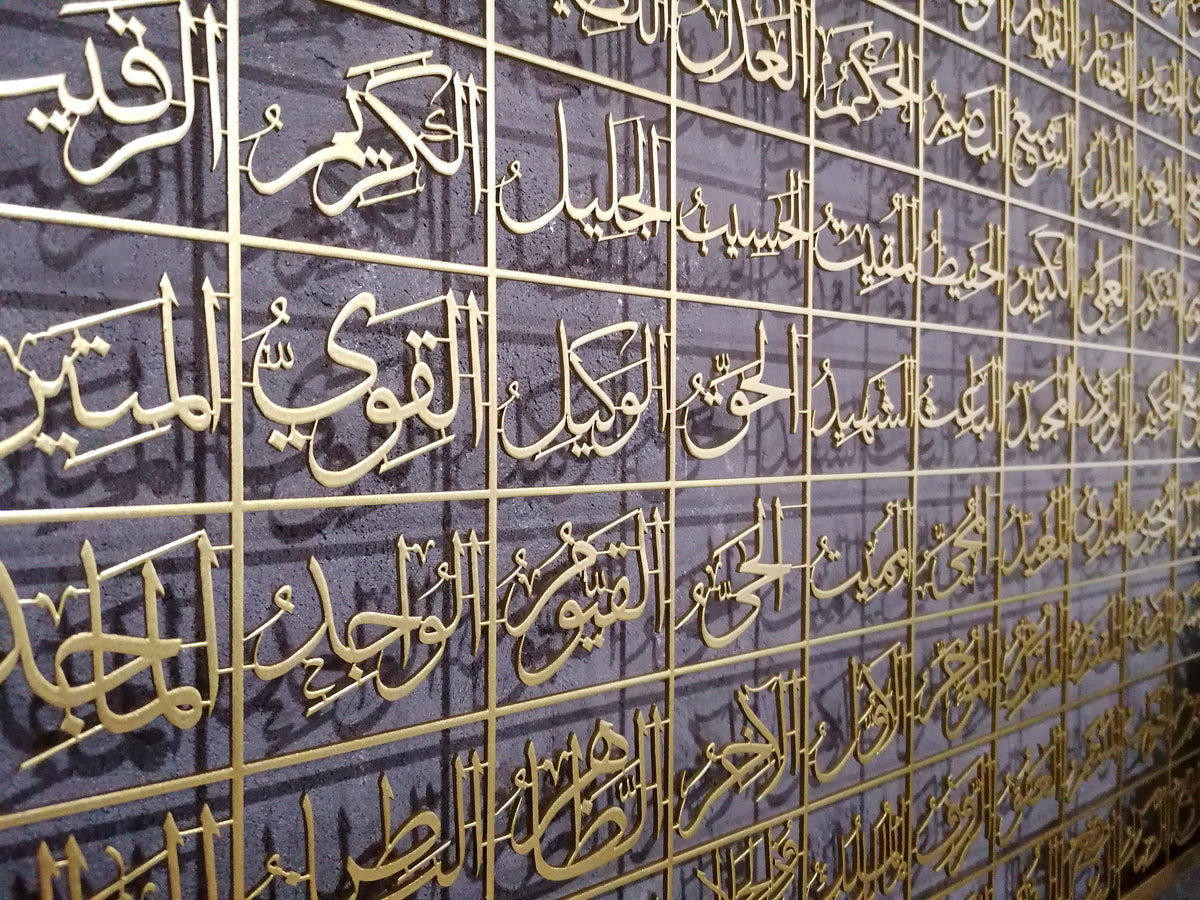 القهار الغفار
اللطيف العدل الحكم البصير السميع المذل المعز
الرقيب الكريم الجليل الحسيب المقيت الحفيظ الكبير العلي الشكور
المتين القوي الوكيل الحق الشهيد الباعث المجيد الودود الحكيم
الماجد الواجد القيوم الحي المميت المحيي المعيد المبدئ المحصي
الباطن الظاهر الآخر الأول المؤخر المقدم المقتدر
الرءوف العفو